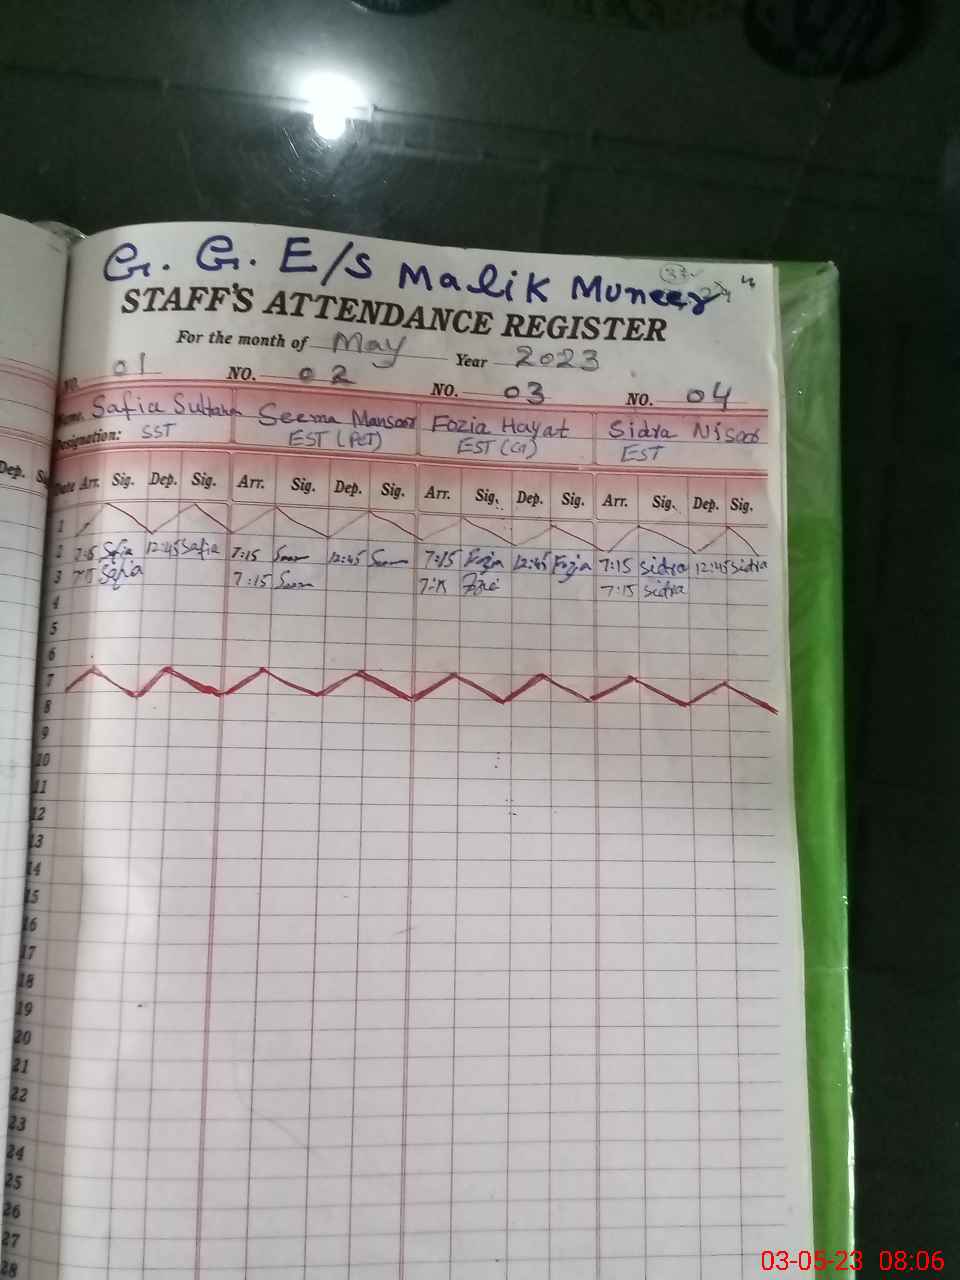 G. G. E/S Malik Muneer
STAFF'S ATTENDANCE REGISTER
For the month of May Year 2023
NO. 01 NO. 02 NO. 03 NO. 04
Name. Safia Sultana Seema Mansoor Fozia Hayat Sidra Nisar
Designation: SST EST (PET) EST (CT) EST
Dep.
Date Arr. Sig. Dep. Sig. Arr. Sig. Dep. Sig. Arr. Sig. Dep. Sig. Arr. Sig. Dep. Sig.
1
2 7:15 Safia 12:45 Safia 7:15 12:45 7:15 Fozia 12:45 Fozia 7:15 sidra 12:45 sidra
3 7:15 Safia 7:15 7:15 Fozia 7:15 sidra
4
5
6
7
8
9
10
11
12
13
14
15
16
17
18
19
20
21
22
23
24
25
26
27
28
03-05-23 08:06